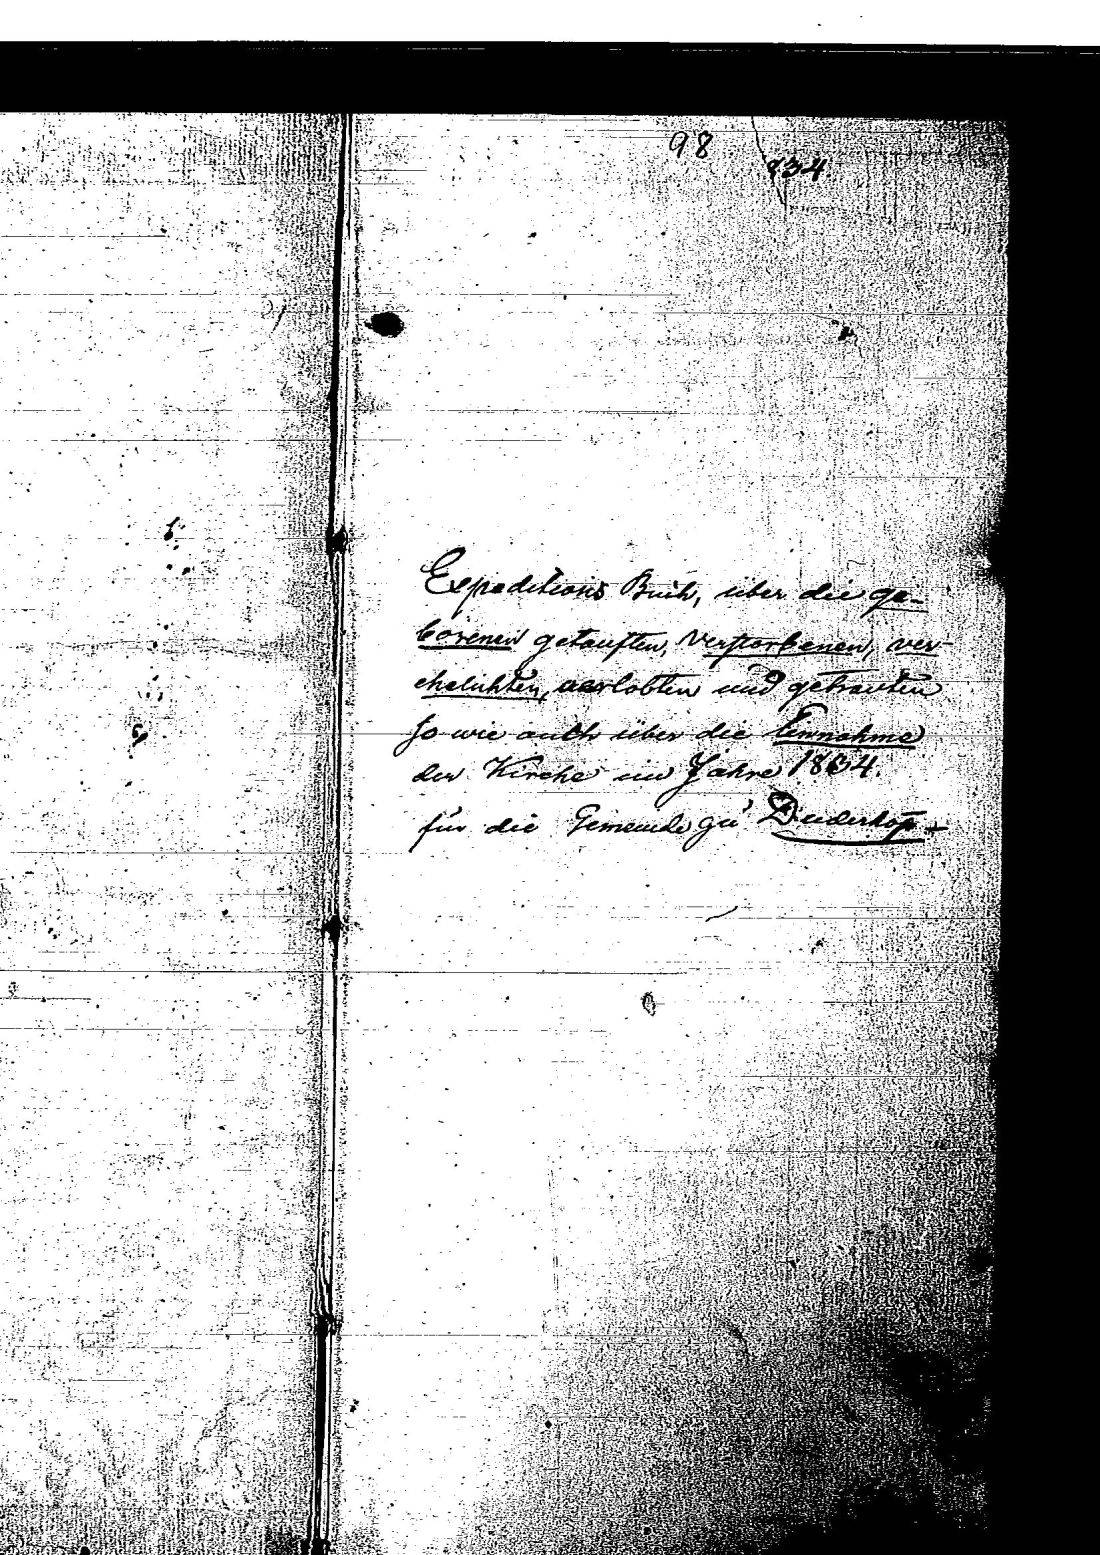 98
834.
Expeditions Buch, über die ge-
borenen getauften, Verstorbenen, ver-
ehelichten, verlobten und getrauten
so wie auch über die Einnahme
der Kirche im Jahre 1834.
für die Gemeinde zu